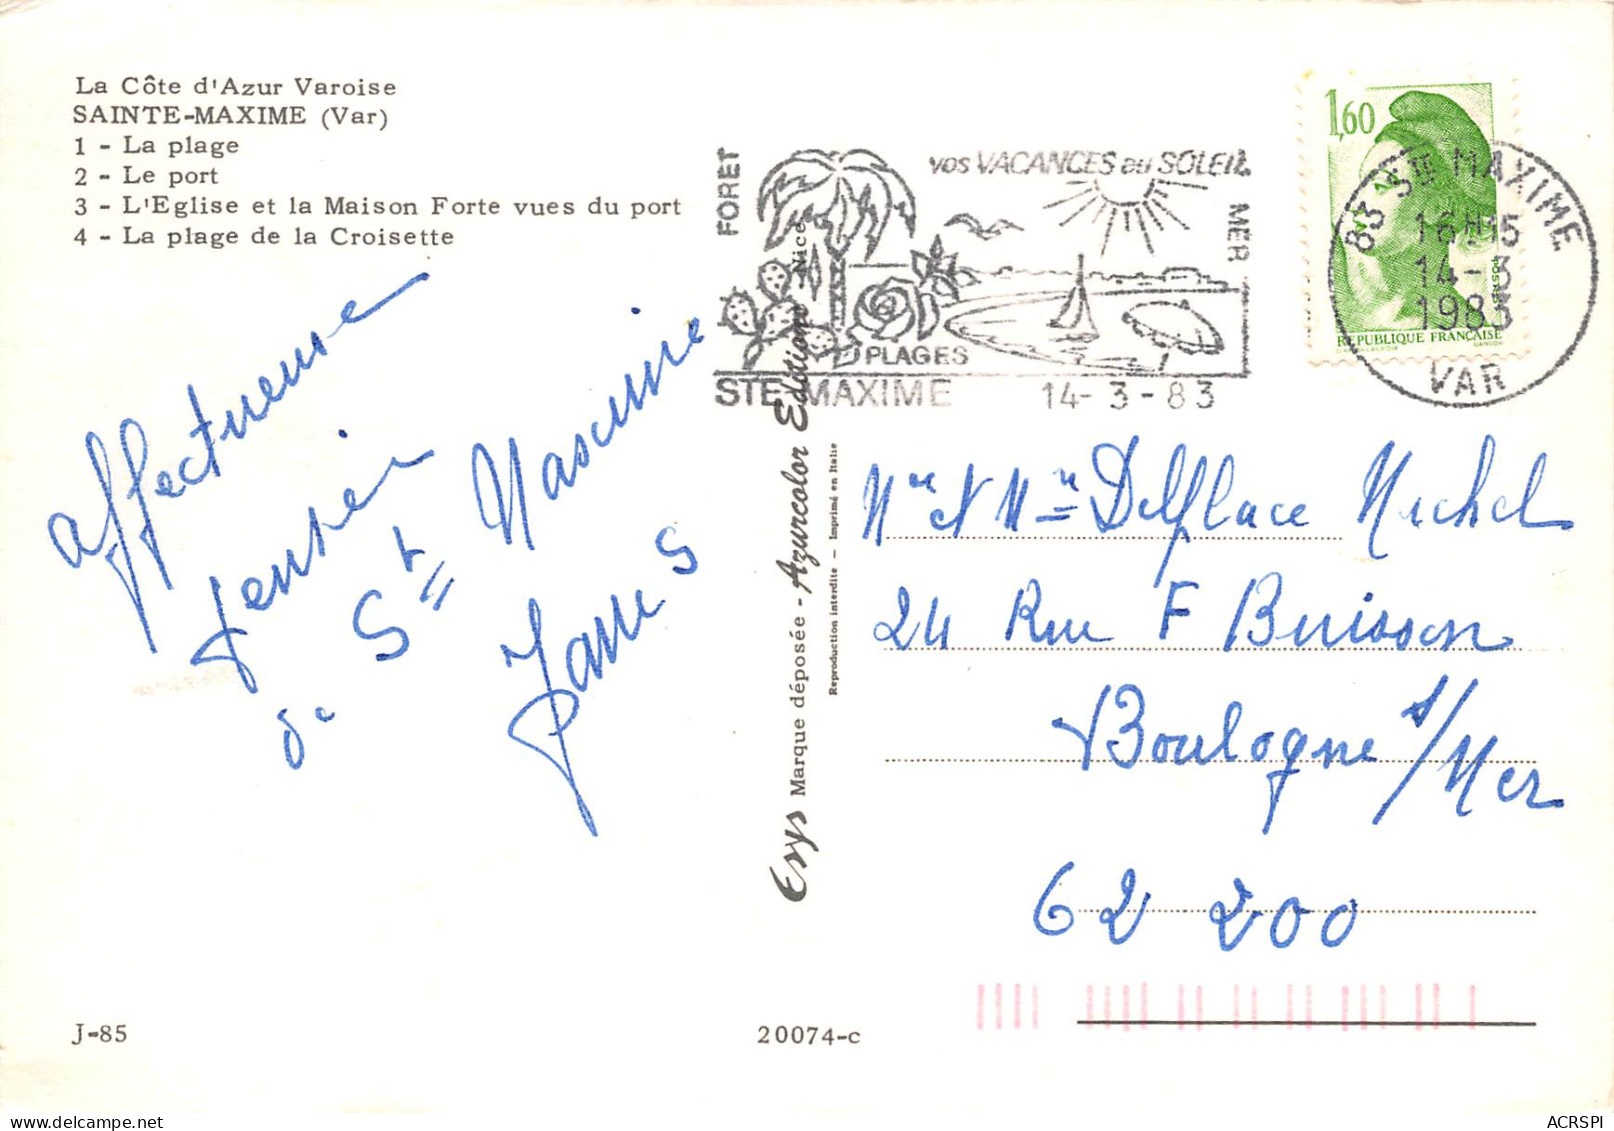 La Côte d'Azur Varoise
SAINTE-MAXIME (Var)
1 - La plage
2 - Le port
3 - L'Eglise et la Maison Forte vues du port
4 - La plage de la Croisette
FORET
vos VACANCES au SOLEIL
MER
PLAGES
STE MAXIME 14-3-83
1,60
POSTES
REPUBLIQUE FRANÇAISE
GANDON
83 STE MAXIME
16H15
14-3
1983
VAR
affectueuse
pensée
de Ste Maxime
Delplace Michel
24 Rue F Buisson
Boulogne s/Mer
62 200
Esys Marque déposée - Azurcolor Editions Nice
Reproduction interdite - Imprimé en Italie
J-85
20074-c
ACRSPI